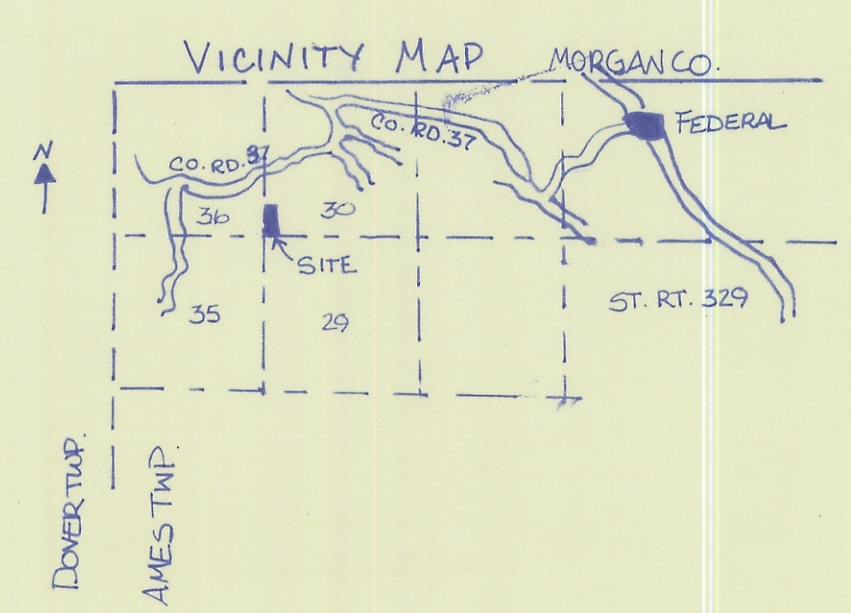 VICINITY MAP
MORGAN CO.
FEDERAL
CO. RD. 37
CO. RD. 37
N
36
30
SITE
35
29
ST. RT. 329
DOVER TWP.
AMES TWP.